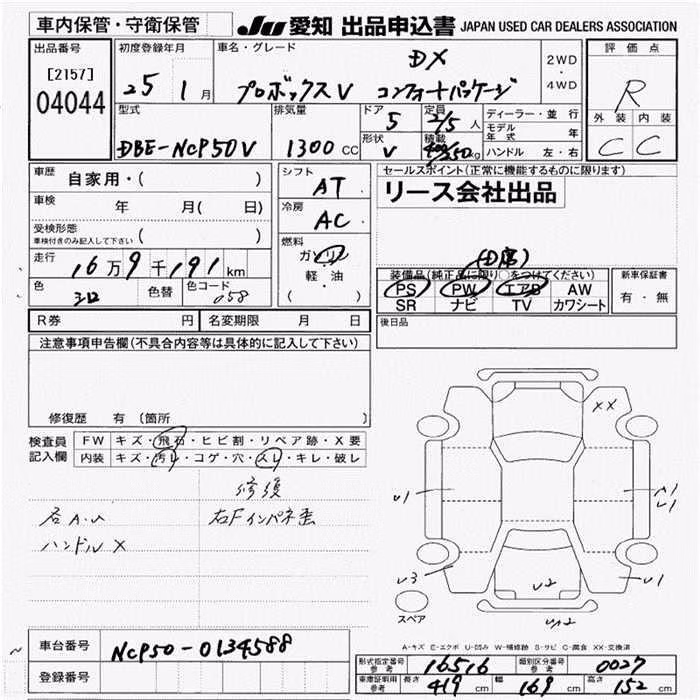 車内保管・守衛保管 JU 愛知 出品申込書 JAPAN USED CAR DEALERS ASSOCIATION
出品番号 初度登録年月 車名・グレード DX 2WD・4WD 評価点
[2157] 25 1月 プロボックスV コンフォートパッケージ R
04044
型式 排気量 ドア 5 定員 2/5人 ディーラー・並行 外装 内装
DBE-NCP50V 1300cc 形状 V 積載 400/250kg モデル年式 年 C C
ハンドル 左・右
車歴 自家用・( ) シフト AT セールスポイント(正常に機能するものに限ります)
車検 年 月( 日) 冷房 AC リース会社出品
受検形態 車検付きのみ記入して下さい ( )
燃料 ガソリン
走行 16万9千191km 軽・油 (D席)
装備品(純正品に限り○をつけてください) 新車保証書
色 シロ 色替 色コード 058 ( ) PS PW エアB AW 有・無
SR ナビ TV カワシート
R券 円 名変期限 月 日 後日品
注意事項申告欄(不具合内容等は具体的に記入して下さい)
修復歴 有(箇所
XX
検査員 FW キズ・飛石・ヒビ割・リペア跡・X要
記入欄 内装 キズ・汚レ・コゲ・穴・スレ・キレ・破レ
修復
各A.U 右Fインパネ歪
ハンドルX
U1 A1
U1
U3 U2 U1
スペア UA2
A-キズ E-エクボ U-凹み W-補修跡 S-サビ C-腐食 XX-交換済
車台番号 NCP50-0134588
形式指定番号 参考 16516 類別区分番号 参考 0027
登録番号
車庫証明用 参考 長さ 419cm 幅 169cm 高さ 152cm